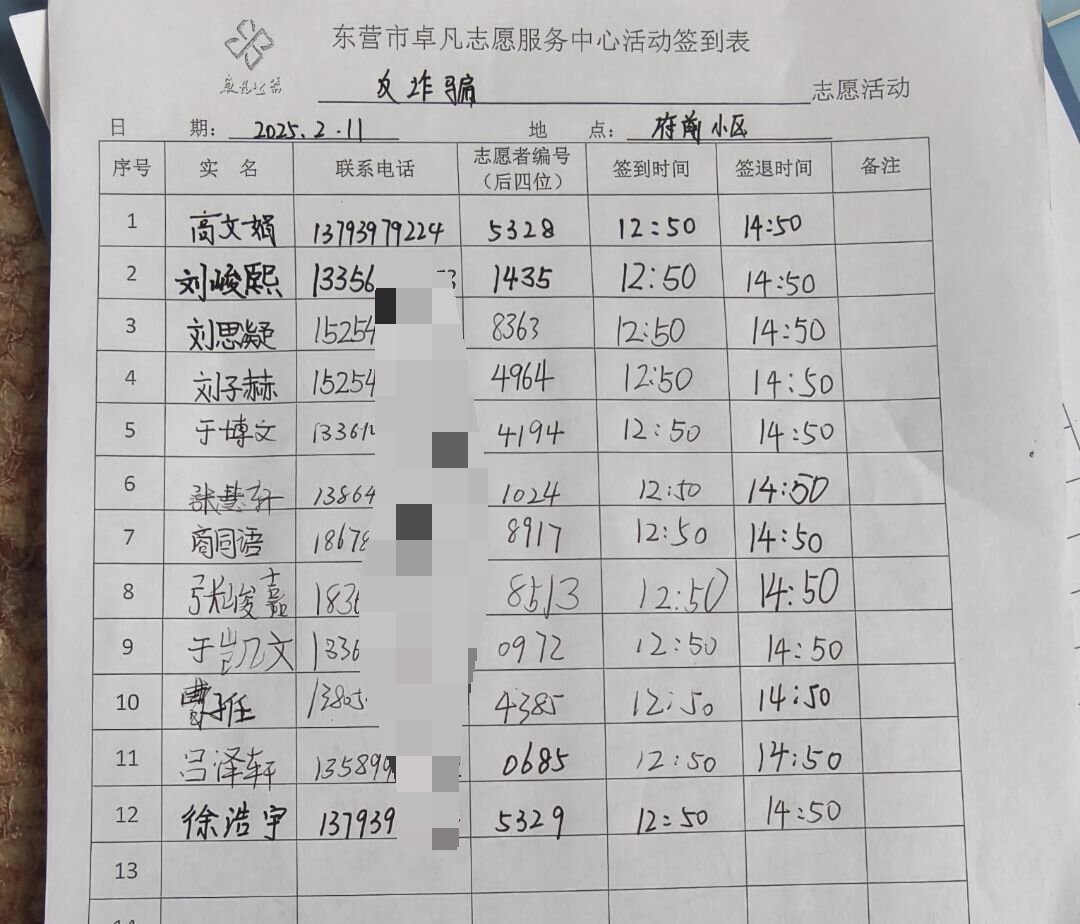 东营市卓凡志愿服务中心活动签到表
卓凡公益
反诈骗 志愿活动
日 期: 2025.2.11 地 点: 府前小区
序号 实 名 联系电话 志愿者编号(后四位) 签到时间 签退时间 备注
1 高文娟 13793979224 5328 12:50 14:50
2 刘峻熙 13356 53 1435 12:50 14:50
3 刘思凝 15254 8363 12:50 14:50
4 刘子赫 15254 4964 12:50 14:50
5 于博文 13361 4194 12:50 14:50
6 张慧轩 13864 1024 12:50 14:50
7 商同语 18678 8917 12:50 14:50
8 张峻嘉 1836 8513 12:50 14:50
9 于凯文 1336 0972 12:50 14:50
10 曹子任 13805 4385 12:50 14:50
11 吕泽轩 135899 0685 12:50 14:50
12 徐浩宇 137939 5329 12:50 14:50
13